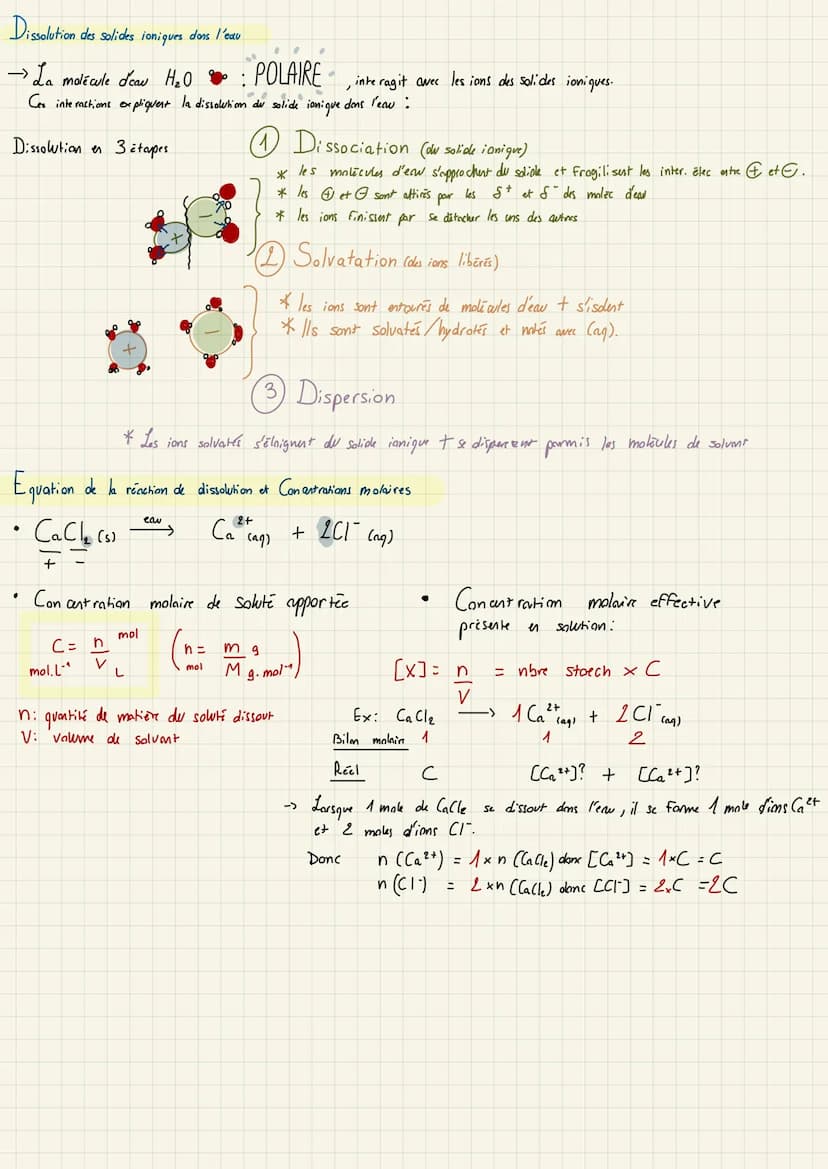 Dissolution des solides ioniques dans l'eau
→ La molécule d'eau H₂O : POLAIRE, interagit avec les ions des solides ioniques.
Ces interactions expliquent la dissolution du solide ionique dans l'eau :
Dissolution en 3 étapes
① Dissociation (du solide ionique)
* les molécules d'eau s'approchent du solide et fragilisent les inter. élec entre ⊕ et ⊖.
* les ⊕ et ⊖ sont attirés par les δ⁺ et δ⁻ des moléc d'eau
* les ions finissent par se détacher les uns des autres
② Solvatation (des ions libérés)
* les ions sont entourés de molécules d'eau + s'isolent
* Ils sont solvatés/hydratés et notés avec (aq).
③ Dispersion
* Les ions solvatés s'éloignent du solide ionique + se dispersent parmis les molécules de solvant
Equation de la réaction de dissolution et Concentrations molaires
• CaCl₂ (s) eau→ Ca²⁺(aq) + 2Cl⁻(aq)
+ −
• Concentration molaire de soluté apportée
C = n/V mol L mol.L⁻¹ (n = m/M mol g g.mol⁻¹)
n: quantité de matière du soluté dissout
V: volume de solvant
• Concentration molaire effective
présente en solution:
[X] = n/V = nbre stoech × C
Ex: CaCl₂ → 1Ca²⁺(aq) + 2Cl⁻(aq)
Bilan molaire 1 1 2
Réel C [Ca²⁺]? + [Ca²⁺]?
→ Lorsque 1 mole de CaCl₂ se dissout dans l'eau, il se forme 1 mole d'ions Ca²⁺
et 2 moles d'ions Cl⁻.
Donc n(Ca²⁺) = 1×n(CaCl₂) donc [Ca²⁺] = 1×C = C
n(Cl⁻) = 2×n(CaCl₂) donc [Cl⁻] = 2×C = 2C